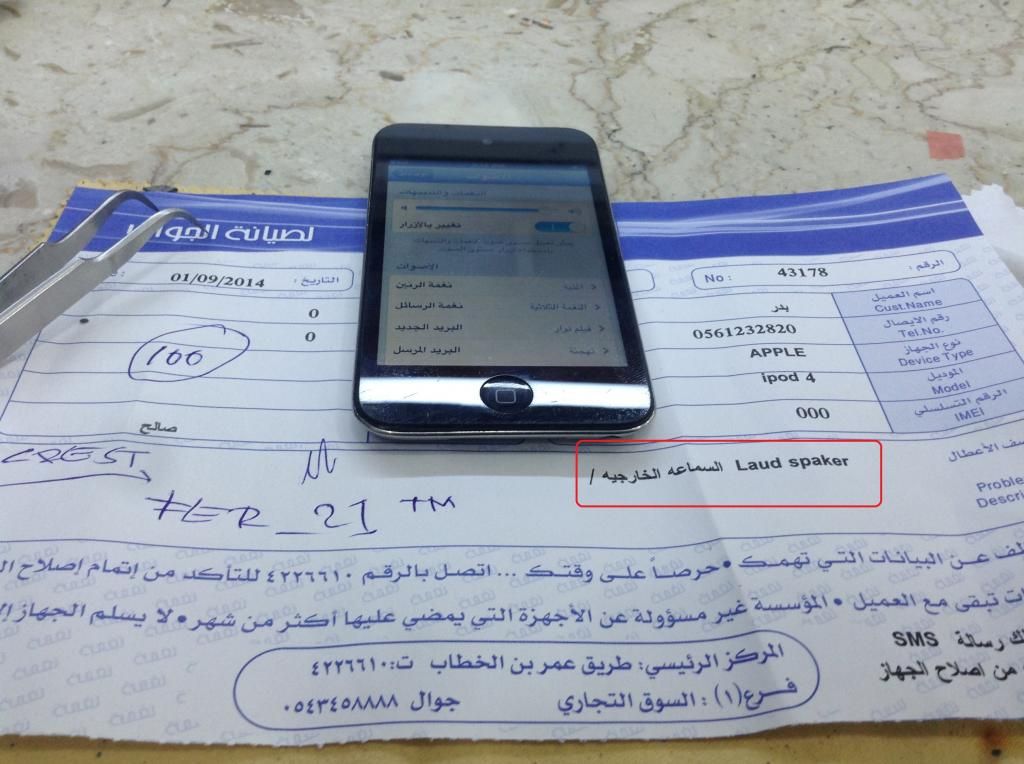 لصيانة الجوا
الرقم :
43178
No :
التاريخ :
01/09/2014
اسم العميل
Cust.Name
بدر
0
رقم الاتصال
Tel.No.
0561232820
0
نوع الجهاز
Device Type
APPLE
100
الموديل
Model
ipod 4
الرقم التسلسلي
IMEI
000
صالح
النغمات والتنبيهات
تغيير بالأزرار
الأصوات
نغمة الرنين
نغمة الرسائل
النغمة الثلاثية
البريد الجديد
البريد المرسل
صف الأعطال
Proble
Descri
السماعه الخارجيه / Laud spaker
CREST
FER_21 ™
لف عن البيانات التي تهمك • حرصاً على وقتك ... اتصل بالرقم ٤٢٢٦٦١٠ للتأكد من إتمام إصلاح ال
ات تبقى مع العميل • المؤسسة غير مسؤولة عن الأجهزة التي يمضي عليها أكثر من شهر • لا يسلم الجهاز إلا
ك رسالة SMS
من اصلاح الجهاز
المركز الرئيسي: طريق عمر بن الخطاب ت: ٤٢٢٦٦١٠
فرع (١) : السوق التجاري جوال ٠٥٤٣٤٥٨٨٨٨